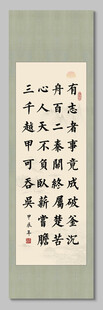 有志者事竟成破釜沉
舟百二秦關終屬楚苦
心人天不負臥薪嘗膽
三千越甲可吞吳
甲辰年